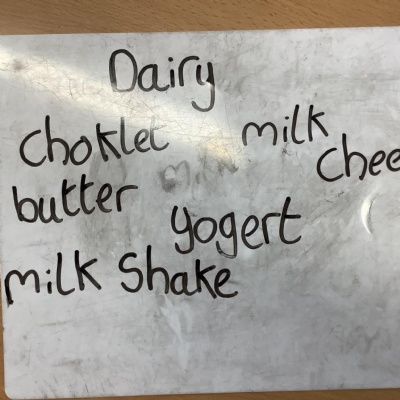 Dairy
choklet milk
chee
butter
yogert
milk Shake